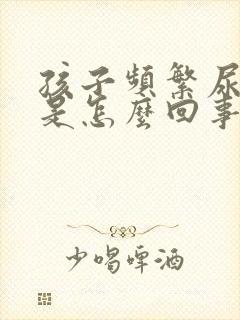 孩子頻繁尿
是怎麼回事
少喝啤酒